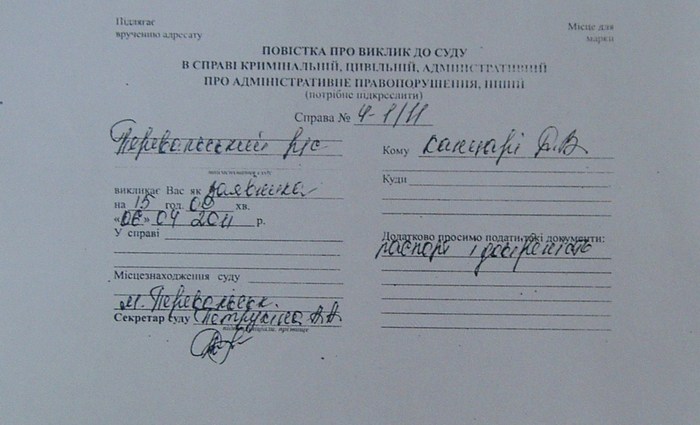 Підлягає
врученню адресату
Місце для
марки
ПОВІСТКА ПРО ВИКЛИК ДО СУДУ
В СПРАВІ КРИМІНАЛЬНІЙ, ЦИВІЛЬНІЙ, АДМІНІСТРАТИВНІЙ
ПРО АДМІНІСТРАТИВНЕ ПРАВОПОРУШЕННЯ, ІНШІЙ
(потрібне підкреслити)
Справа № 4-1/11
Перевальський р/с
викликає Вас як заявника
на 15 год. 00 хв.
«06» 04 2011 р.
У справі
Місцезнаходження суду
м. Перевальськ.
Секретар суду Петрухіна А.А.
Кому Д.В
Куди
Додатково просимо подати такі документи:
паспорт і довіреність